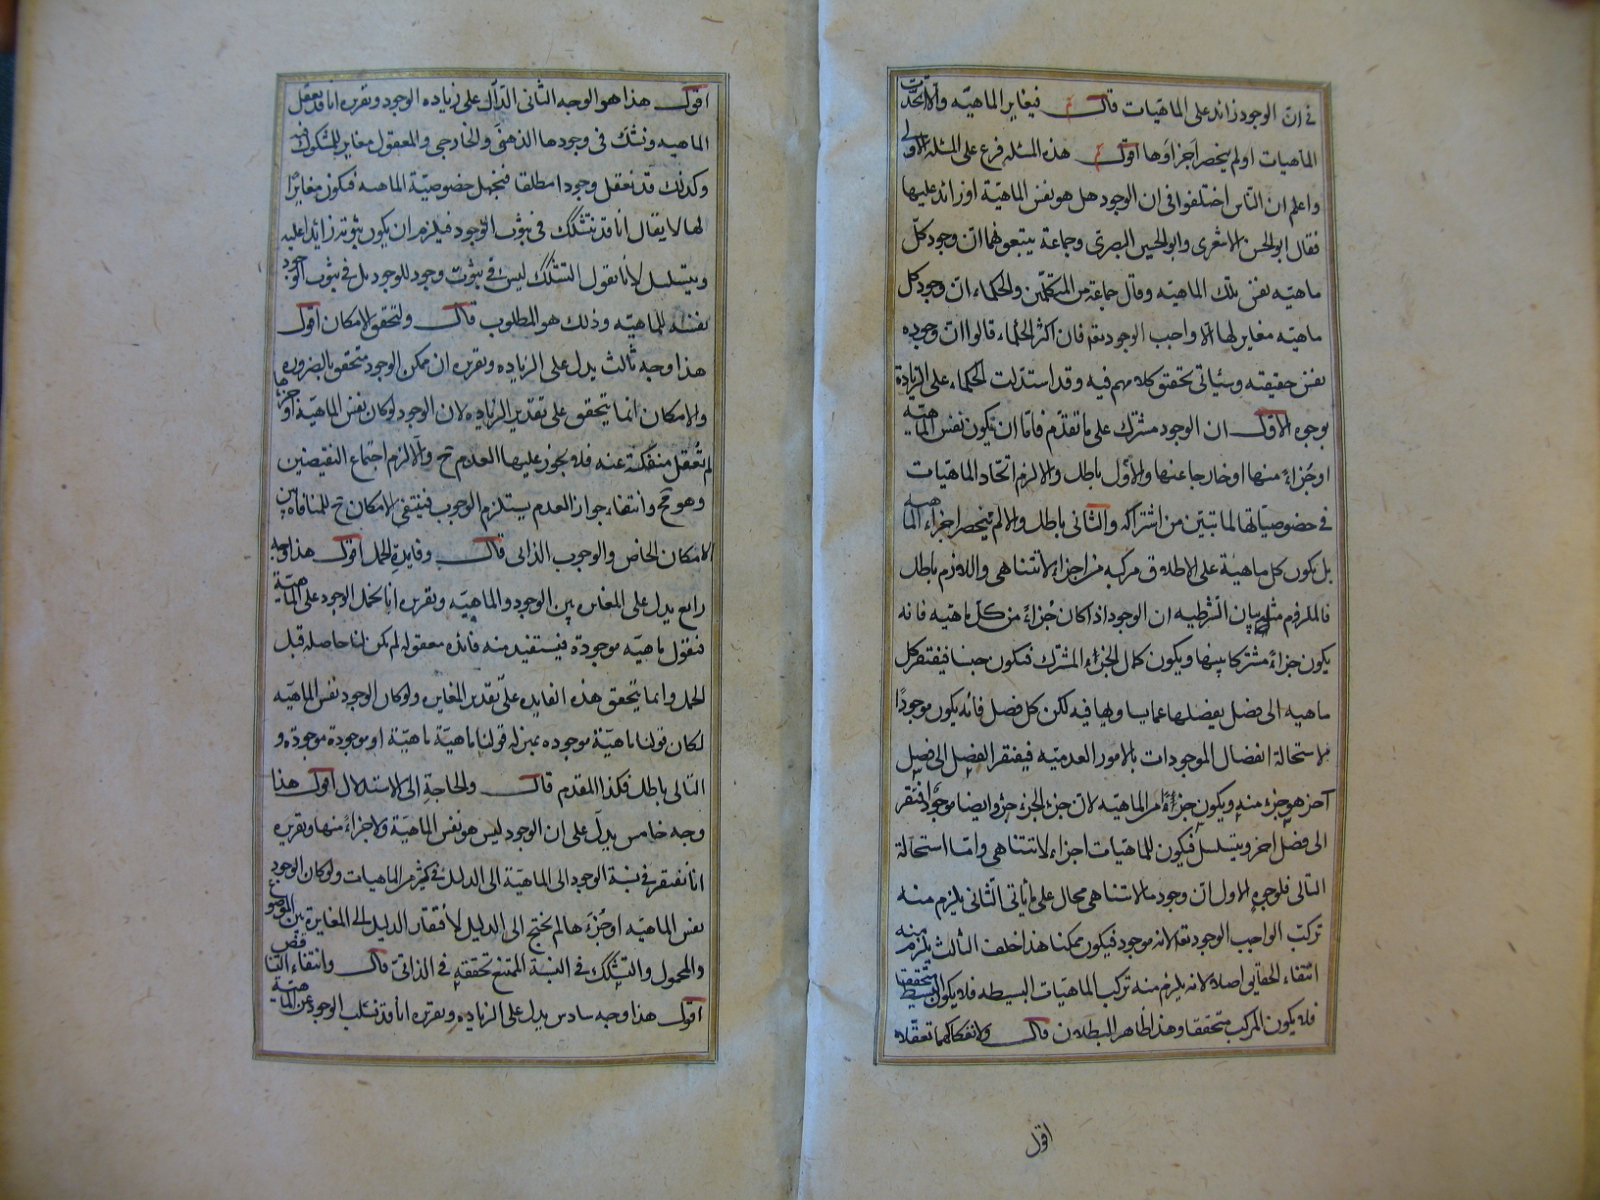 في ان الوجود زائد على الماهيات قال فيغاير الماهيه والا اتحدت
الماهيات او لم ينحصر اجزاوها اقول هذه المسئله فرع على المسئله الاولى
واعلم ان الناس اختلفوا في ان الوجود هل هو نفس الماهية او زائد عليها
فقال ابو الحسن الاشعرى وابو الحسين البصرى وجماعة يتبعوهما ان وجود كل
ماهيه نفس تلك الماهيه وقال جماعة من المتكلمين والحكماء ان وجود كل
ماهيه مغاير لها الا واجب الوجود تعم فان اكثر الحكماء قالوا ان وجوده
نفس حقيقته وسياتى تحقق كلامهم فيه وقد استدلت الحكماء على الزيادة
بوجوه الاول ان الوجود مشترك على ما تقدم فاما ان يكون نفس الماهيه
او جزاء منها او خارجا عنها والاول باطل والا لزم اتحاد الماهيات
في خصوصياتها لما تبين من اشتراكه والثانى باطل والا لم ينحصر اجزاء الماهيه
بل يكون كل ماهية على الاطلاق مركبه من اجزاء لا تتناهى واللازم باطل
فالملزوم مثله بيان الشرطيه ان الوجود اذا كان جزاء من كل ماهيه فانه
يكون جزاء مشتركا بينها ويكون كمال الجزء المشترك فيكون جنسا فيفتقر كل
ماهيه الى فصل يفصلها عما يساويها فيه لكن كل فصل فانه يكون موجودا
لاستحالة انفصال الموجودات بالامور العدميه فيفتقر الفصل الى فصل
آخر هو جزء منه ويكون جزءا من الماهيه لان جزء الجزء جزء وايضا موجودا فتقر
الى فصل اخر ويتسلسل فيكون للماهيات اجزاء لا تتناهى واما استحالة
التالى فلوجوه الاول ان وجود ما لا يتناهى محال على ما ياتى الثانى يلزم منه
تركب الواجب الوجود تعلانه موجود فيكون ممكنا هذا خلف الثالث يلزم منه
انتفاء الحقايق اصلا لانه يلزم منه تركب الماهيات البسيطه فلا يكون البسيط متحققا
فلا يكون المركب متحققا وهذا ظاهر البطلان قال ولانفكاكهما تعقلا
اقول
اقول هذا هو الوجه الثانى الدال على زياده الوجود وتقريره انا قد نعقل
الماهيه ونشك في وجودها الذهنى والخارجى والمعقول مغاير للمشكوك فيه
وكذلك قد نعقل وجودا مطلقا فنجهل خصوصية الماهيه فيكون مغايرا
لها لا يقال انا قد نتشكك في ثبوت الوجود فيلزم ان يكون ثبوته زائدا عليه
ويتسلسل لانا نقول التشكك ليس في ثبوت وجود للوجود بل في ثبوت الوجود
نفسه للماهيه وذلك هو المطلوب قال ولتحقق الامكان اقول
هذا وجه ثالث يدل على الزياده وتقريره ان ممكن الوجود متحقق بالضروره
والامكان انما يتحقق على تقدير الزياده لان الوجود لو كان نفس الماهيه او جزءها
لم تعقل منفكة عنه فلا يجوز عليها العدم ح والا لزم اجتماع النقيضين
وهو مح وانتفاء جواز العدم يستلزم الوجوب فينتفى الامكان ح للمنافاه بين
الامكان الخاص والوجوب الذاتى قال وفايدة الحمل اقول هذا وجه
رابع يدل على المغايره بين الوجود والماهيه وتقريره انا نحمل الوجود على الماهية
فنقول ماهيه موجودة فيستفيد منه فائده معقوله لم تكن لنا حاصله قبل
الحمل وانما يتحقق هذه الفايده على تقدير المغايره ولو كان الوجود نفس الماهيه
لكان قولنا ماهية موجوده بمنزله قولنا ماهية ماهية او موجودة موجوده و
التالى باطل فكذا المقدم قال والحاجة الى الاستدلال اقول هذا
وجه خامس يدل على ان الوجود ليس هو نفس الماهية ولا جزاء منها وتقريره
انا نفتقر في نسبة الوجود الى الماهية الى الدليل في كثير من الماهيات ولو كان الوجود
نفس الماهيه او جزءها لم يحتج الى الدليل لافتقار الدليل الى المغايرة بين الموضوع
والمحمول والتشكك في النسبة الممتنع تحققه في الذاتى قال وانتفاء التناقض
اقول هذا وجه سادس يدل على الزياده وتقريره انا قد نسلب الوجود عن الماهية